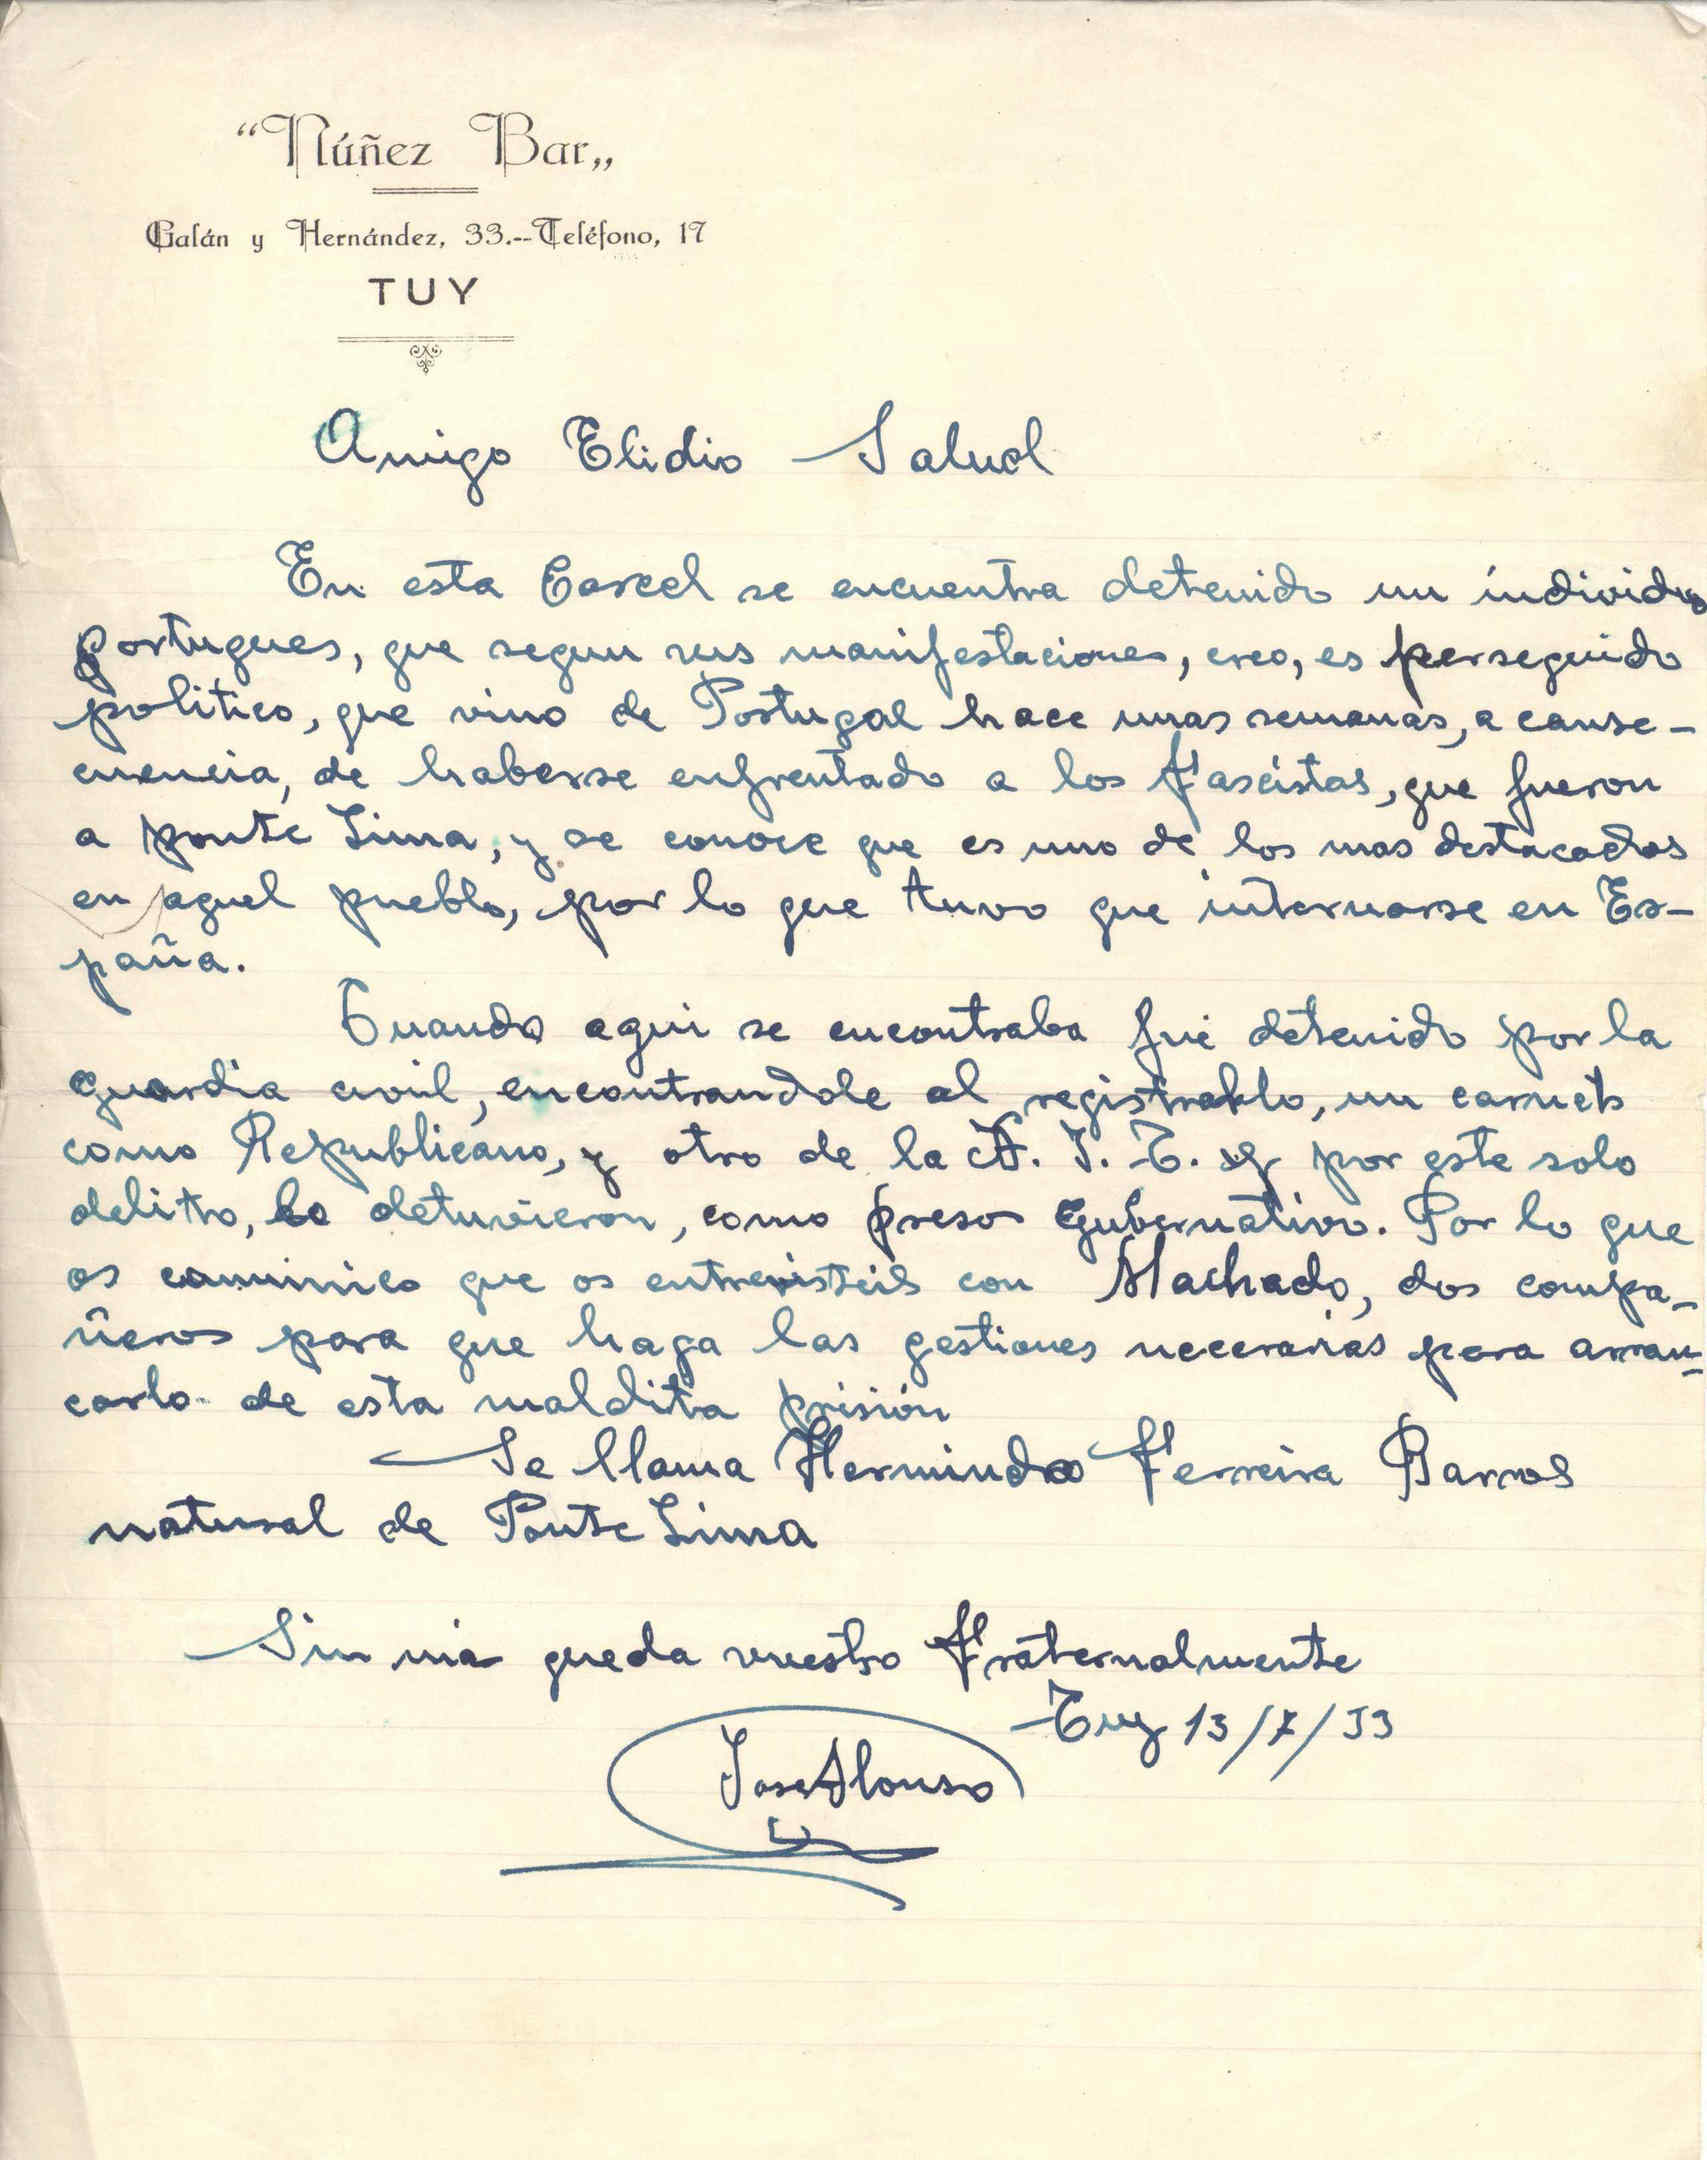 “Núñez Bar„
Galán y Hernández, 33.--Teléfono, 17
TUY
Amigo Elidio Salud
En esta Carcel se encuentra detenido un individuo
portugues, que segun sus manifestaciones, creo, es perseguido
politico, que vino de Portugal hace unas semanas, a canse-
cuencia, de haberse enfrentado a los fascistas, que fueron
a ponte Lima, y se conoce que es uno de los mas destacados
en aquel pueblo, por lo que tuvo que internarse en Es-
paña.
Cuando aqui se encontraba fué detenido por la
guardia civil, encontrandole al registrarlo, un carnets
como Republicano, y otro de la A. I. T. y por este solo
delito, lo detuvieron, como preso gubernativo. Por lo que
os comunico que os entrevisteis con Machado, dos compa-
ñeros para que haga las gestiones necesarias para arran-
carlo de esta maldita prisión
Se llama Hermindo Ferreira Barros
natural de Ponte Lima
Sin más queda vuestro fraternalmente
Tuy 13/7/33
Jose Alonso